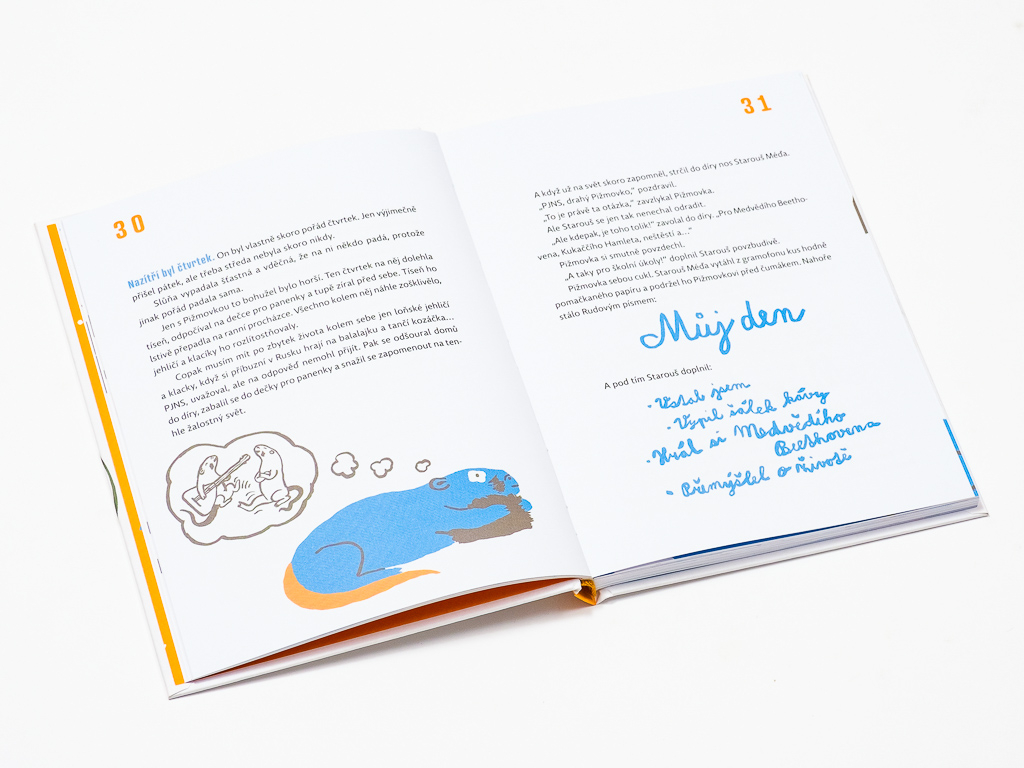 30
Nazítří byl čtvrtek. On byl vlastně skoro pořád čtvrtek. Jen výjimečně
přišel pátek, ale třeba středa nebyla skoro nikdy.
Slúňa vypadala šťastná a vděčná, že na ni někdo padá, protože
jinak pořád padala sama.
Jen s Pižmovkou to bohužel bylo horší. Ten čtvrtek na něj dolehla
tíseň, odpočíval na dečce pro panenky a tupě zíral před sebe. Tíseň ho
lstivě přepadla na ranní procházce. Všechno kolem něj náhle zošklivělo,
jehličí a klacíky ho rozlítostňovaly.
Copak musím mít po zbytek života kolem sebe jen loňské jehličí
a klacky, když si příbuzní v Rusku hrají na balalajku a tančí kozáčka…
PJNS, uvažoval, ale na odpověď nemohl přijít. Pak se odšoural domů
do díry, zabalil se do dečky pro panenky a snažil se zapomenout na ten-
hle žalostný svět.
31
A když už na svět skoro zapomněl, strčil do díry nos Starouš Méďa.
„PJNS, drahý Pižmovko,“ pozdravil.
„To je právě ta otázka,“ zavzlykal Pižmovka.
Ale Starouš se jen tak nenechal odradit.
„Ale kdepak, je toho tolik!“ zavolal do díry. „Pro Medvědího Beetho-
vena, Kukaččího Hamleta, neštěstí a…“
Pižmovka si smutně povzdechl.
„A taky pro školní úkoly!“ doplnil Starouš povzbudivě.
Pižmovka sebou cukl. Starouš Méďa vytáhl z gramofonu kus hodně
pomačkaného papíru a podržel ho Pižmovkovi před čumákem. Nahoře
stálo Rudovým písmem:
Můj den
A pod tím Starouš doplnil:
· Vstal jsem
· Vypil šálek kávy
· Hrál si Medvědího
Beethovena
· Přemýšlel o životě